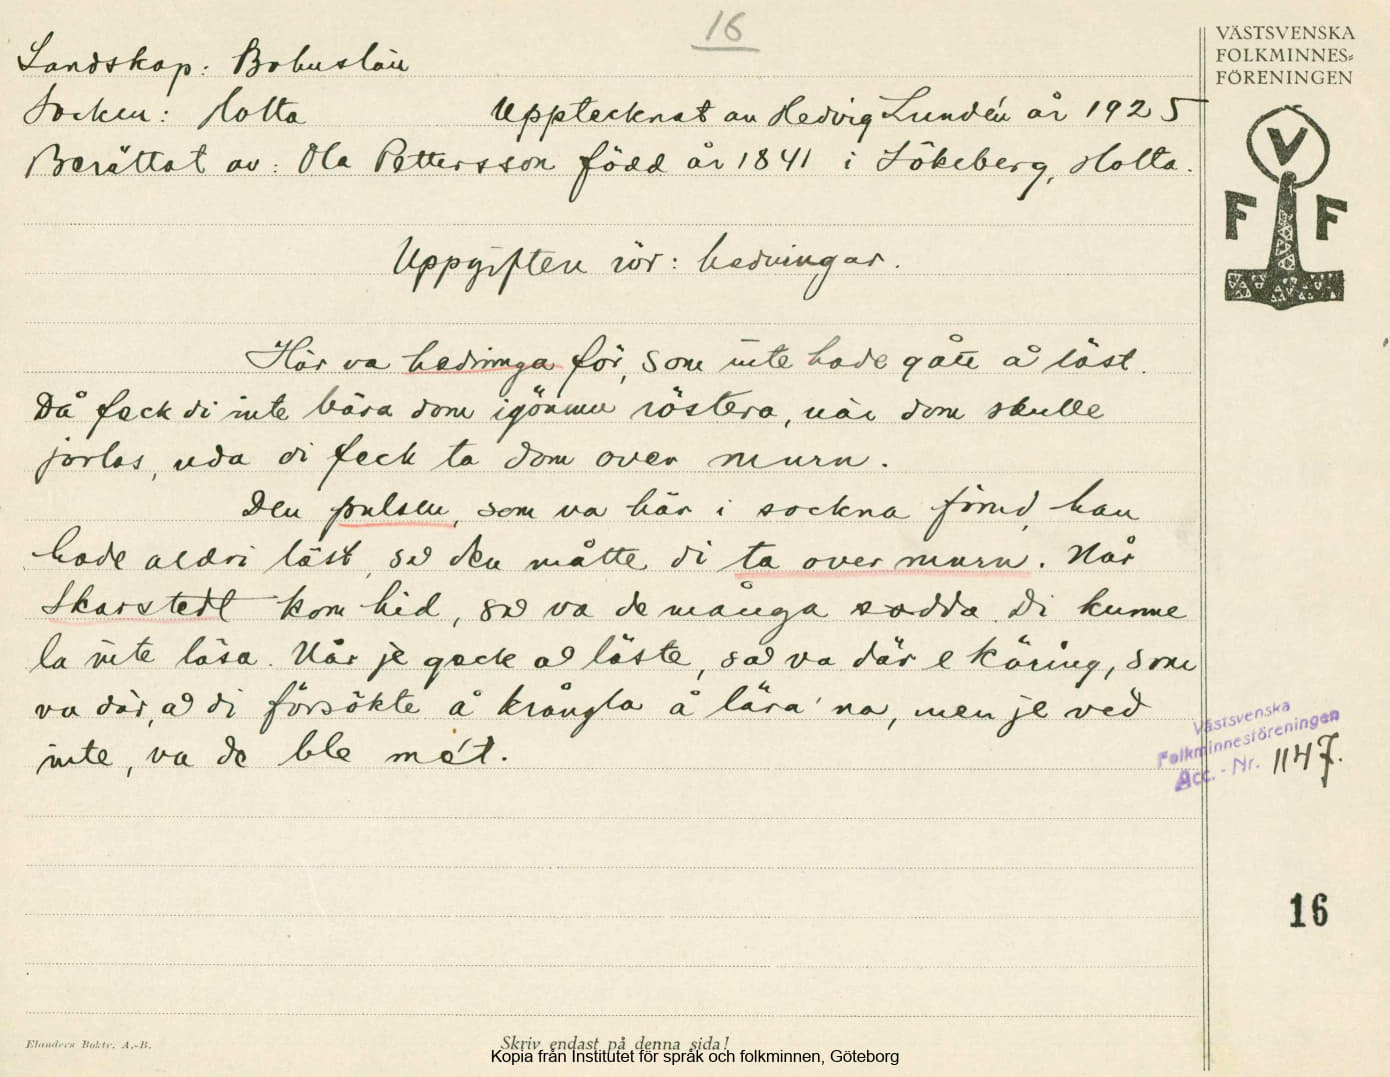 16
VÄSTSVENSKA
FOLKMINNES=
FÖRENINGEN
V
F F
Landskap: Bohuslän
Socken: Holta Upptecknat av Hedvig Lundén år 1925
Berättat av: Ola Pettersson född år 1841 i Sökeberg, Holta.
Uppgiften rör: hedningar.
Här va hedninga för, som inte hade gått å läst.
Då feck di inte bära dom igönmu röstera, när dom skulle
jorlas, uda di feck ta dom over murn.
Den pulsen, som va här i sockna förud, han
hade aldri läst, så den måtte di ta over murn. När
Skarstedt kom hid, så va de många sodda. Di kunne
la inte läsa. När je geck å läste, så va där e käring, som
va där, å di försökte å krångla å lära'na, men je ved
inte, va de ble mét.
Västsvenska
Folkminnesföreningen
Acc. - Nr. 1147.
16
Elanders Boktr. A.-B.
Skriv endast på denna sida!
Kopia från Institutet för språk och folkminnen, Göteborg